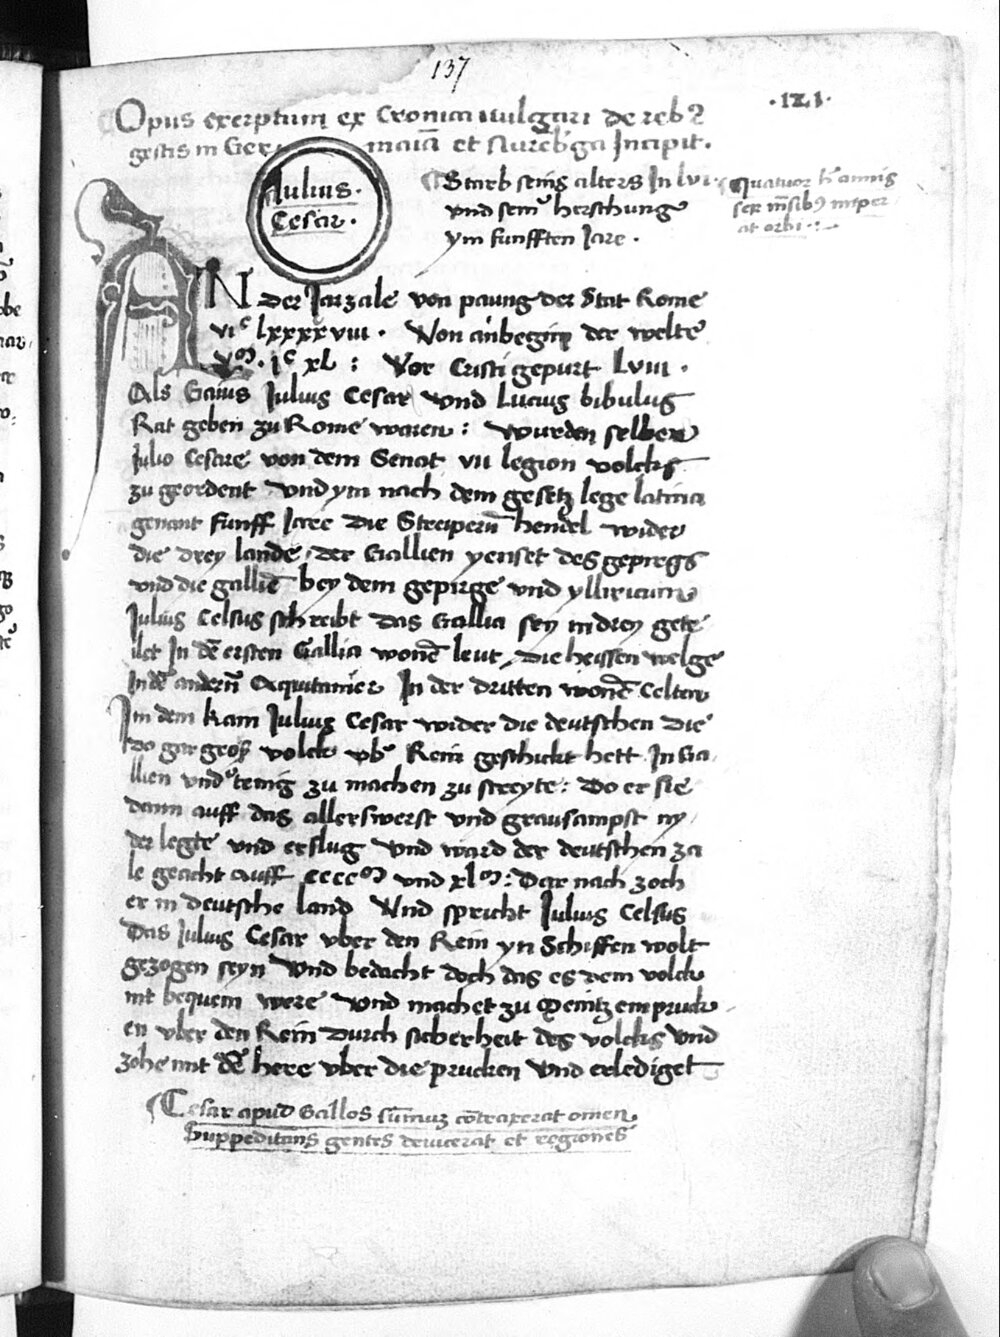 137
·121·
Opus exerptum ex Cronica vulgari de reb9
gestis in Ger maīa et Nurēb'ga Incipit.
Julius·
Cesar·
Starb seins alters In lvi·
vnd sein' herschung
ym funfften Jare·
Quatuor h' annis
sex mēsib9 imper
at orbi
AN der Jarzale von paung der Stat Rome
vic lxxxxviii· Von anbegin der welte
vm· Ic xl: Vor Cristi gepurt Lviii·
Als Gaius Julius Cesar vnd Lucius bibulus
Rat geben zu Rome waren: wurden selben
Julio Cesare von dem Senat vii legion volcks
zu geordent vnd ym nach dem gesetz lege latina
genant funff Jare die Streiperñ hendel wider
die drey lande der Gallien yenset des gepirgs
vnd die galliē bey dem gepirge vnd yllixicum
Julius Celsus schreibt das Gallia sey in drey gete
ilet In dē ersten Gallia wonē leut, die heissen welge
In dē anderñ Acquitanier In der dritten wonē Celten
In dem kam Julius Cesar wider die deutschen die
do gar gross volck vb' Rein geschickt hett In Ga
llien vnd' tenig zu machen zu streyte: Do er sie
dann auff das allerswerst vnd grausampst ny
der legte vnd erslug vnd ward der deutschen za
le geacht auff ccccm vnd xlm: Dar nach zoch
er in deutsche land Vnd spricht Julius Celsus
Das Julius Cesar vber den Rein yn Schiffen wolt
gezogen seyn vnd bedacht doch das es dem volck
nit bequem were vnd machet zu Meintz ein pruck
en vber den Rein durch sicherheit des volcks vnd
zohe mit dē here vber die prucken vnd erlediget
Cesar apud Gallos sūmuz cōtraxerat omen
Suppeditans gentes deuicerat et regiones